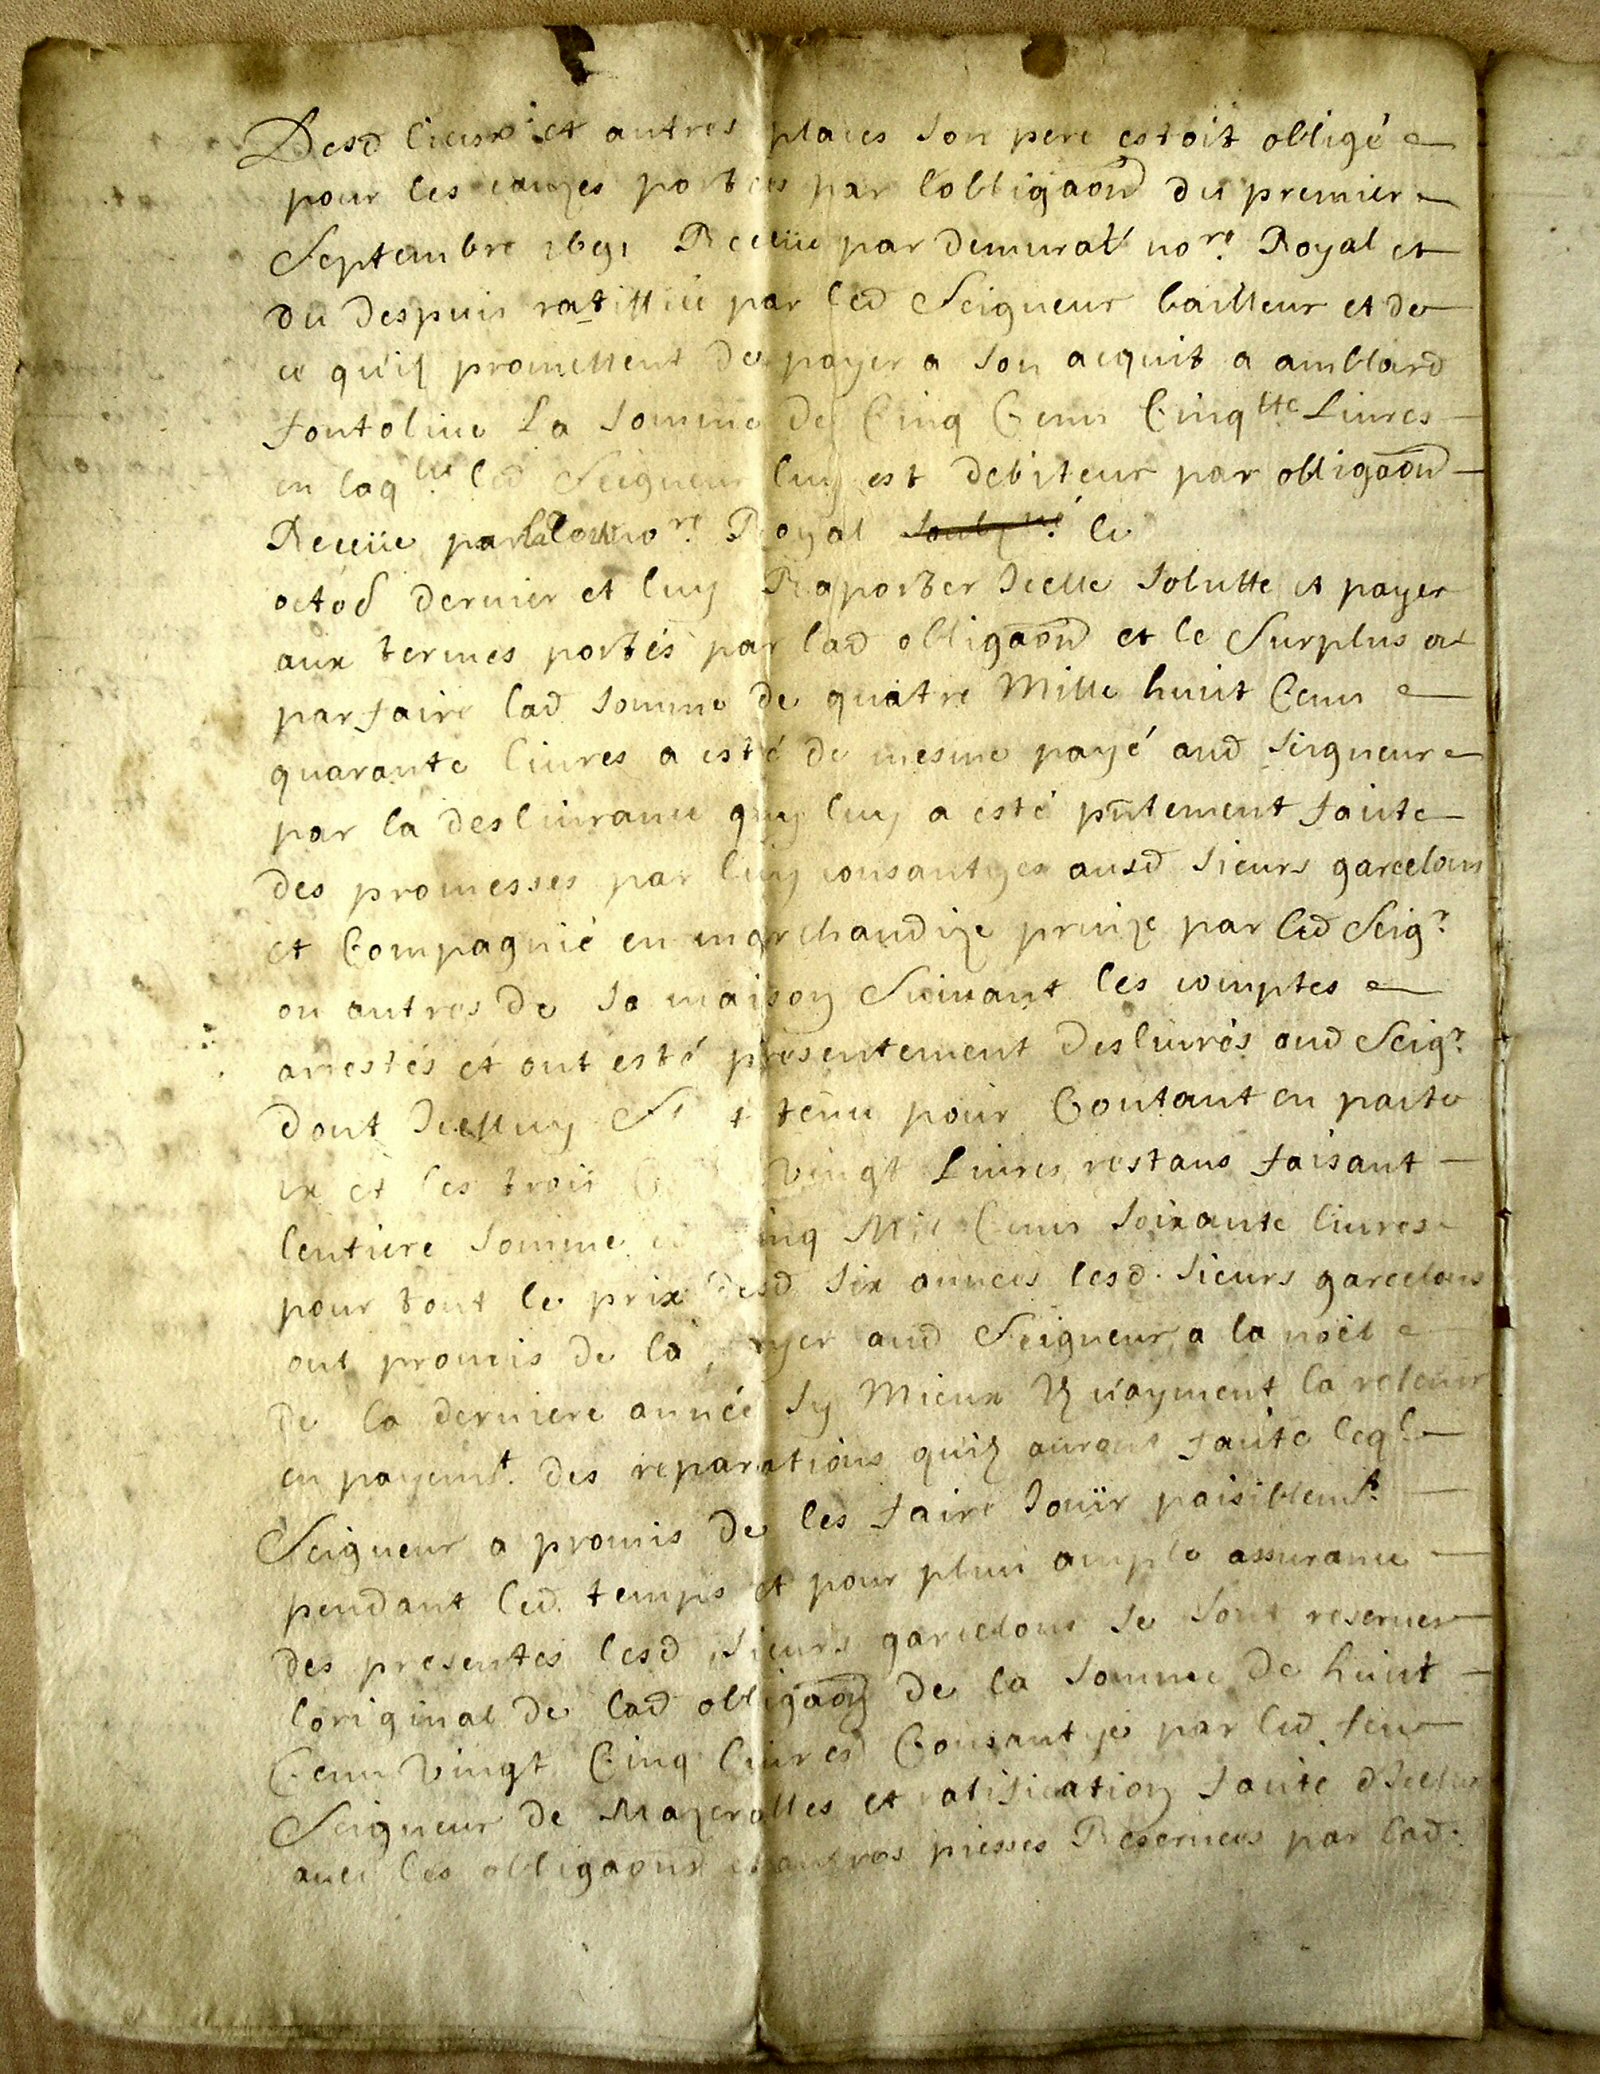 Desd lieux et autres places son pere estoit obligé
pour les causes portées par lobligaon du premier
Septembre 1691 Receüe par demurat no.re Royal et
du despuis ratiffiée par led Seigneur bailleur et de
ce qu'ilz promettent de payer a son acquit a amblard
fontolive La somme de Cinq Cens Cinq.tte Livres
en laq.lle led Seigneur luy est debiteur par obligaon
Receüe par no.re Royal le
octob dernier et luy Raporter Icelle solutte et payer
aux termes portés par lad obligaon et le Surplus a
parfaire lad somme de quatre Mille huit Cens
quarante livres a esté de mesme payé aud seigneur
par la deslivrance quy luy a esté pntement faite
des promesses par luy consanties ausd sieurs garcelons
et Compagnie en marchandize prinze par led Seig.r
ou autres de sa maison Suivant les comptes
arrestés et ont esté presentement deslivrés aud Seig.r
dont Icelluy tenu pour Contant en
et les trois vingt Livres restans faisant
lentiere somme Cinq Mil Cens soixante livres
pour tout le prix desd six années lesd. sieurs garcelons
ont promis de la payer aud Seigneur a la noel
de la derniere année sy Mieux Ilz n'ayment la retenir
en payem.t des reparations quilz auront faite leq.l
Seigneur a promis de les faire Jouïr paisiblem.t
pendant led. temps et pour plus ample assurance
des presentes lesd sieurs garcelons se sont reserver
loriginal de lad obligaon de la somme de huit
Cens Vingt Cinq livres Consantye par led feu
Seigneur de Mazerolles et ratification faite dIcelle
avec les obligaons et autres piesses Reservées par lad.